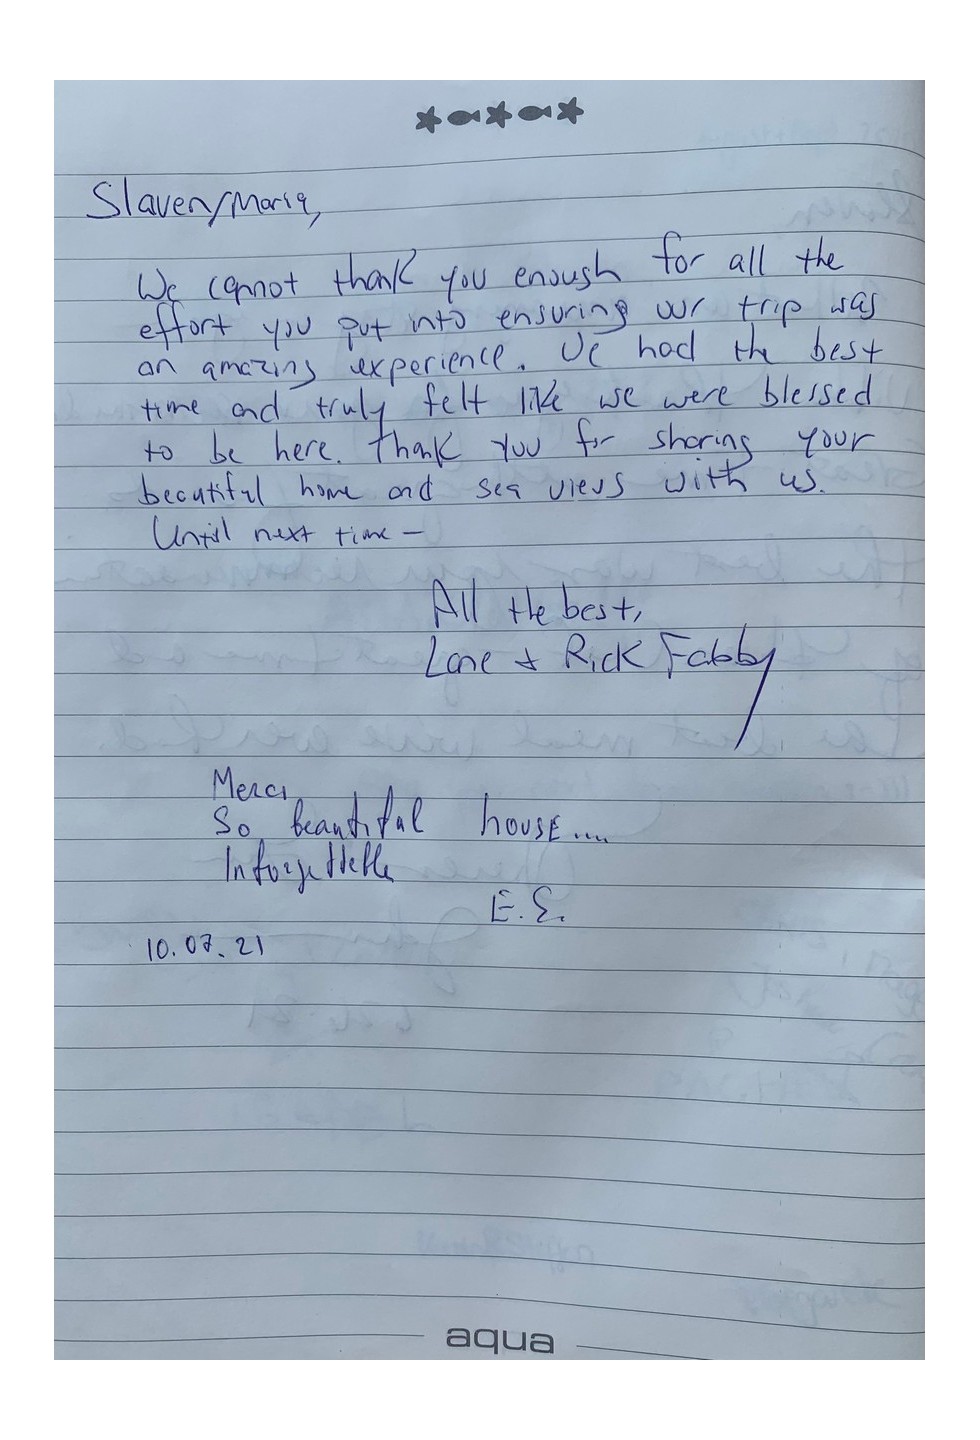 Slaven/Maria,
We cannot thank you enough for all the
effort you put into ensuring our trip was
an amazing experience. We had the best
time and truly felt like we were blessed
to be here. Thank you for sharing your
beautiful home and sea views with us.
Until next time –
All the best,
Lane + Rick Fabby
Merci
So beautiful house....
Inforgettable
E.S.
10.07.21
aqua